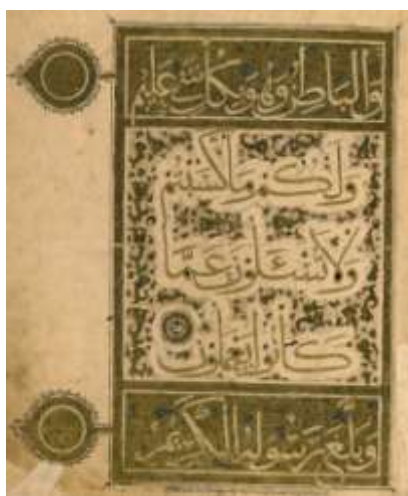 والباطن وهو بكل شىء عليم
ولكم ما كسبتم
ولا تسئلون عما
كانوا يعملون
وبلغ رسوله الكريم